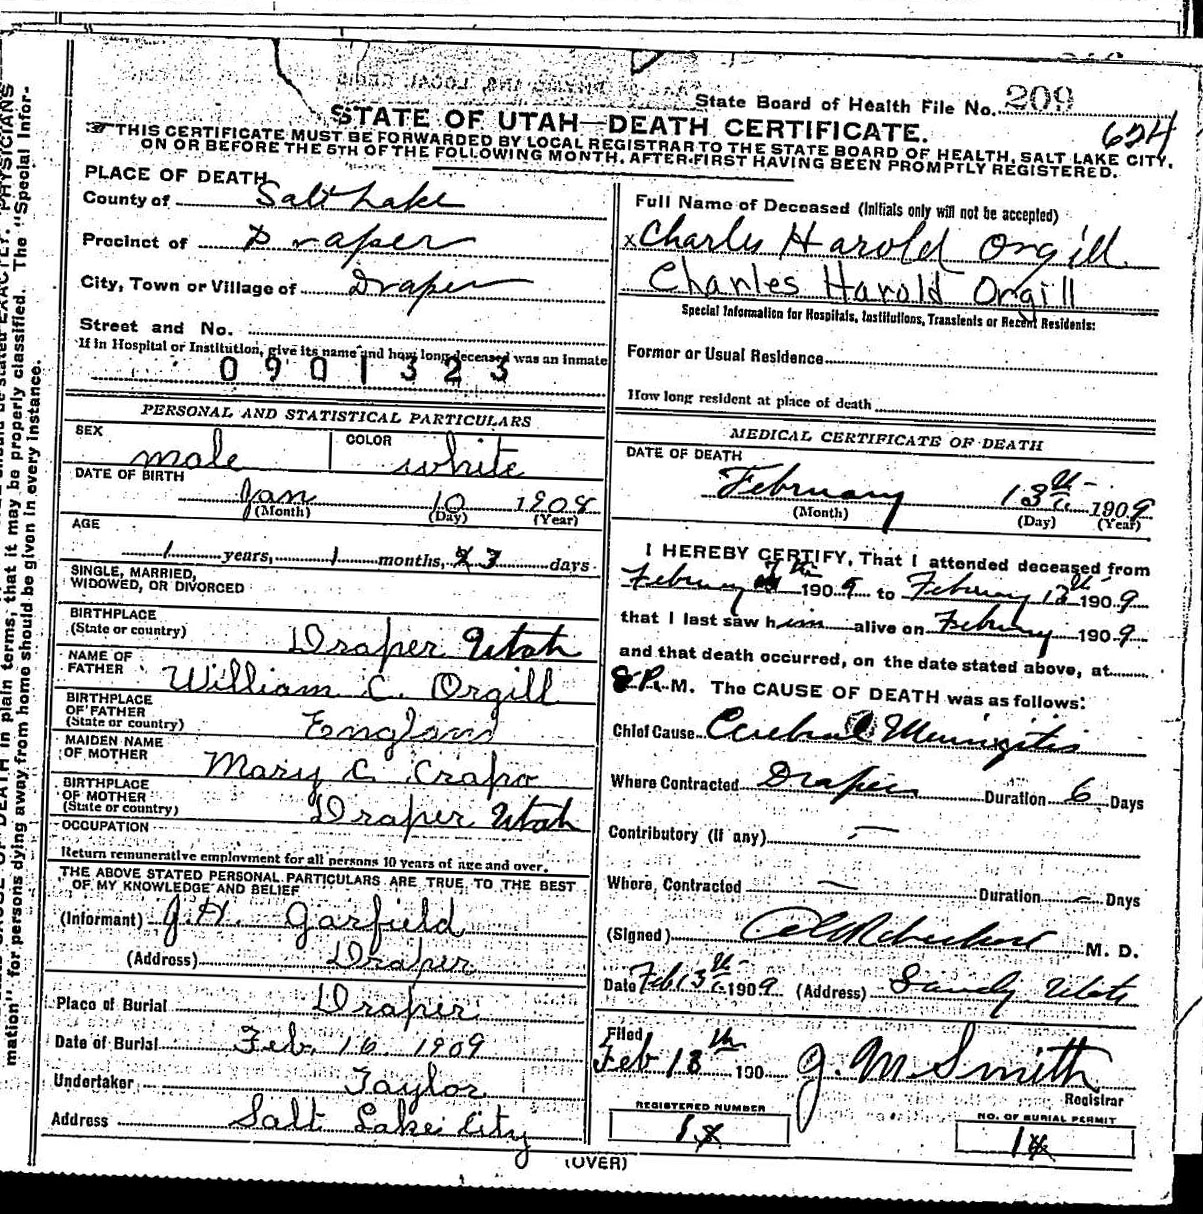 State Board of Health File No. 209
624
STATE OF UTAH—DEATH CERTIFICATE.
THIS CERTIFICATE MUST BE FORWARDED BY LOCAL REGISTRAR TO THE STATE BOARD OF HEALTH, SALT LAKE CITY,
ON OR BEFORE THE 5TH OF THE FOLLOWING MONTH, AFTER FIRST HAVING BEEN PROMPTLY REGISTERED.
PLACE OF DEATH
County of Salt Lake
Precinct of Draper
City, Town or Village of Draper
Street and No.
If in Hospital or Institution, give its name and how long deceased was an inmate
0901323
PERSONAL AND STATISTICAL PARTICULARS
SEX male COLOR white
DATE OF BIRTH
Jan 10 1908
(Month) (Day) (Year)
AGE
1 years, 1 months, 3 days
SINGLE, MARRIED,
WIDOWED, OR DIVORCED
BIRTHPLACE
(State or country) Draper Utah
NAME OF
FATHER William C. Orgill
BIRTHPLACE
OF FATHER
(State or country) England
MAIDEN NAME
OF MOTHER Mary C Crapo
BIRTHPLACE
OF MOTHER
(State or country) Draper Utah
OCCUPATION
Return remunerative employment for all persons 10 years of age and over.
THE ABOVE STATED PERSONAL PARTICULARS ARE TRUE TO THE BEST
OF MY KNOWLEDGE AND BELIEF
(Informant) J. H. Garfield
(Address) Draper
Place of Burial Draper
Date of Burial Feb. 16 1909
Undertaker Taylor
Address Salt Lake City
Full Name of Deceased (Initials only will not be accepted)
x Charles Harold Orgill
Charles Harold Orgill
Special Information for Hospitals, Institutions, Transients or Recent Residents:
Former or Usual Residence
How long resident at place of death
MEDICAL CERTIFICATE OF DEATH
DATE OF DEATH
February 13th 1909
(Month) (Day) (Year)
I HEREBY CERTIFY, That I attended deceased from
February 1909 to February 13th 1909
that I last saw him alive on February 1909
and that death occurred, on the date stated above, at
8 P. M. The CAUSE OF DEATH was as follows:
Chief Cause Cerebral Meningitis
Where Contracted Draper Duration 6 Days
Contributory (if any) —
Where Contracted — Duration — Days
(Signed) M. D.
Date Feb 13th 1909 (Address) Sandy Utah
Filed
Feb 18th 190 J. M. Smith
Registrar
REGISTERED NUMBER
NO. OF BURIAL PERMIT
(OVER)